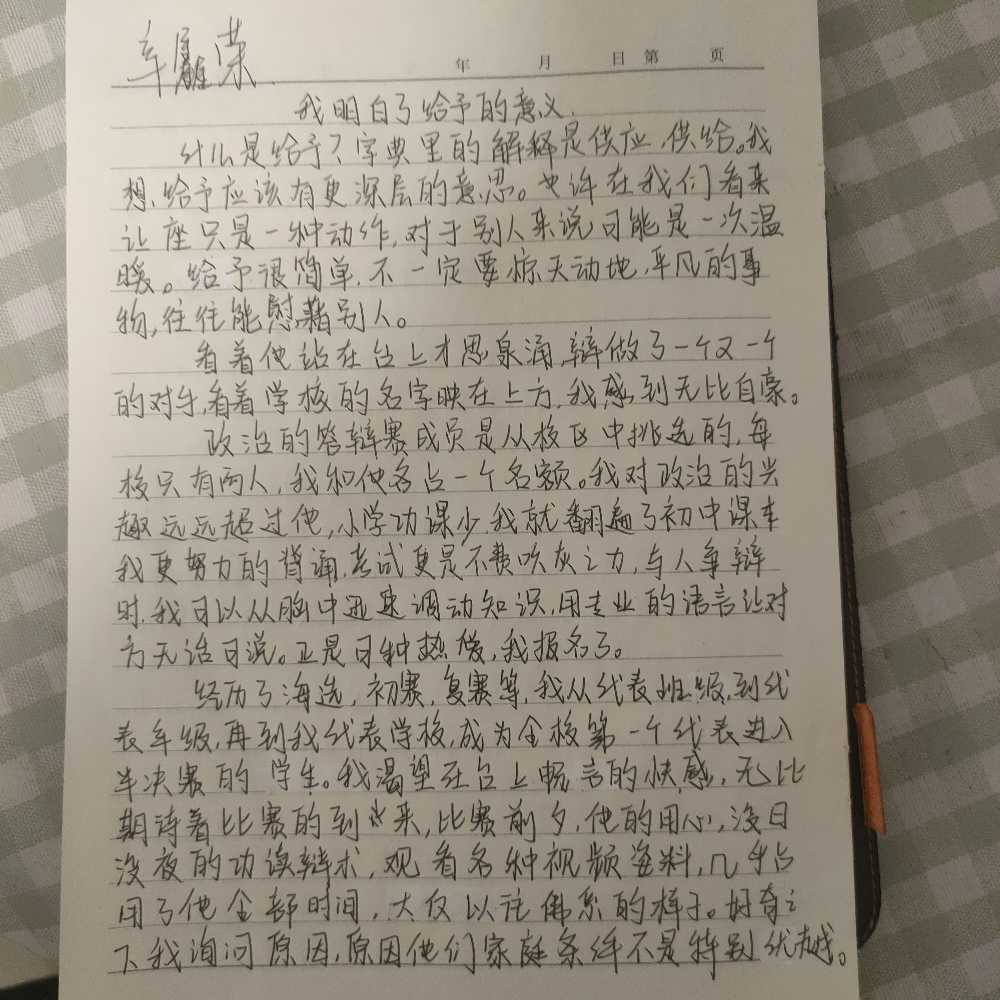 年 月 日 第 页
我明白了给予的意义.
什么是给予？字典里的解释是供应，供给。我
想，给予应该有更深层的意思。也许在我们看来
让座只是一种动作，对于别人来说可能是一次温
暖。给予很简单，不一定要惊天动地，平凡的事
物，往往能慰藉别人。
看着他站在台上才思泉涌，辩做了一个又一个
的对手，看着学校的名字映在上方，我感到无比自豪。
政治的答辩赛成员是从校区中挑选的，每
校只有两人，我和他各占一个名额。我对政治的兴
趣远远超过他，小学功课少，我就翻遍了初中课本
我更努力的背诵，考试更是不费吹灰之力，与人争辩
时，我可以从脑中迅速调动知识，用专业的语言让对
方无话可说。正是日种热爱，我报名了。
经历了海选，初赛，复赛等，我从代表班级，到代
表年级，再到我代表学校，成为全校第一个代表进入
半决赛的学生。我渴望在台上畅言的快感，无比
期待着比赛的到来，比赛前夕，他的用心，没日
没夜的功读辩术，观看各种视频资料，几乎占
用了他全部时间，大仅以往佛系的样子。好奇之
下我询问原因，原因他们家庭条件不是特别优越。